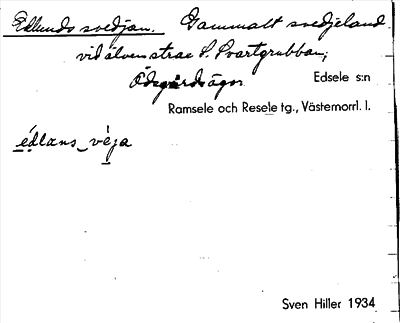 Edlunds svedjan. Gammalt svedjeland
vid älven strax S. Svartgrubban,
Ödsgårdsägor
Edsele s:n
Ramsele och Resele tg., Västernorrl. l.
edlans_veja
Sven Hiller 1934